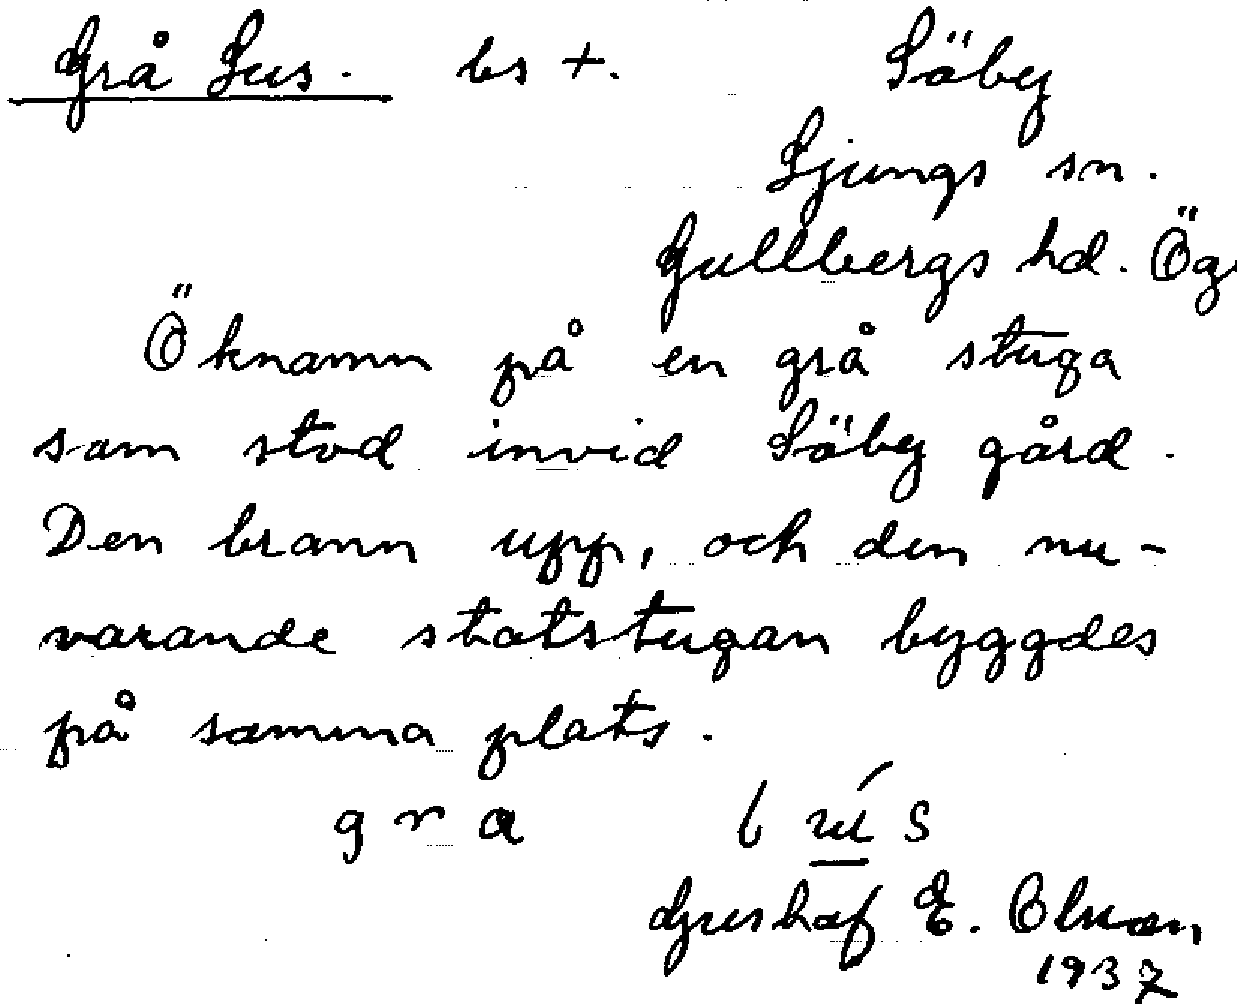 Grå Lus. bs +. Säby
Ljungs sn.
Gullbergs hd. Ög.
Öknamn på en grå stuga
som stod invid Säby gård.
Den brann upp, och den nu-
varande statstugan byggdes
på samma plats.
E.
1937